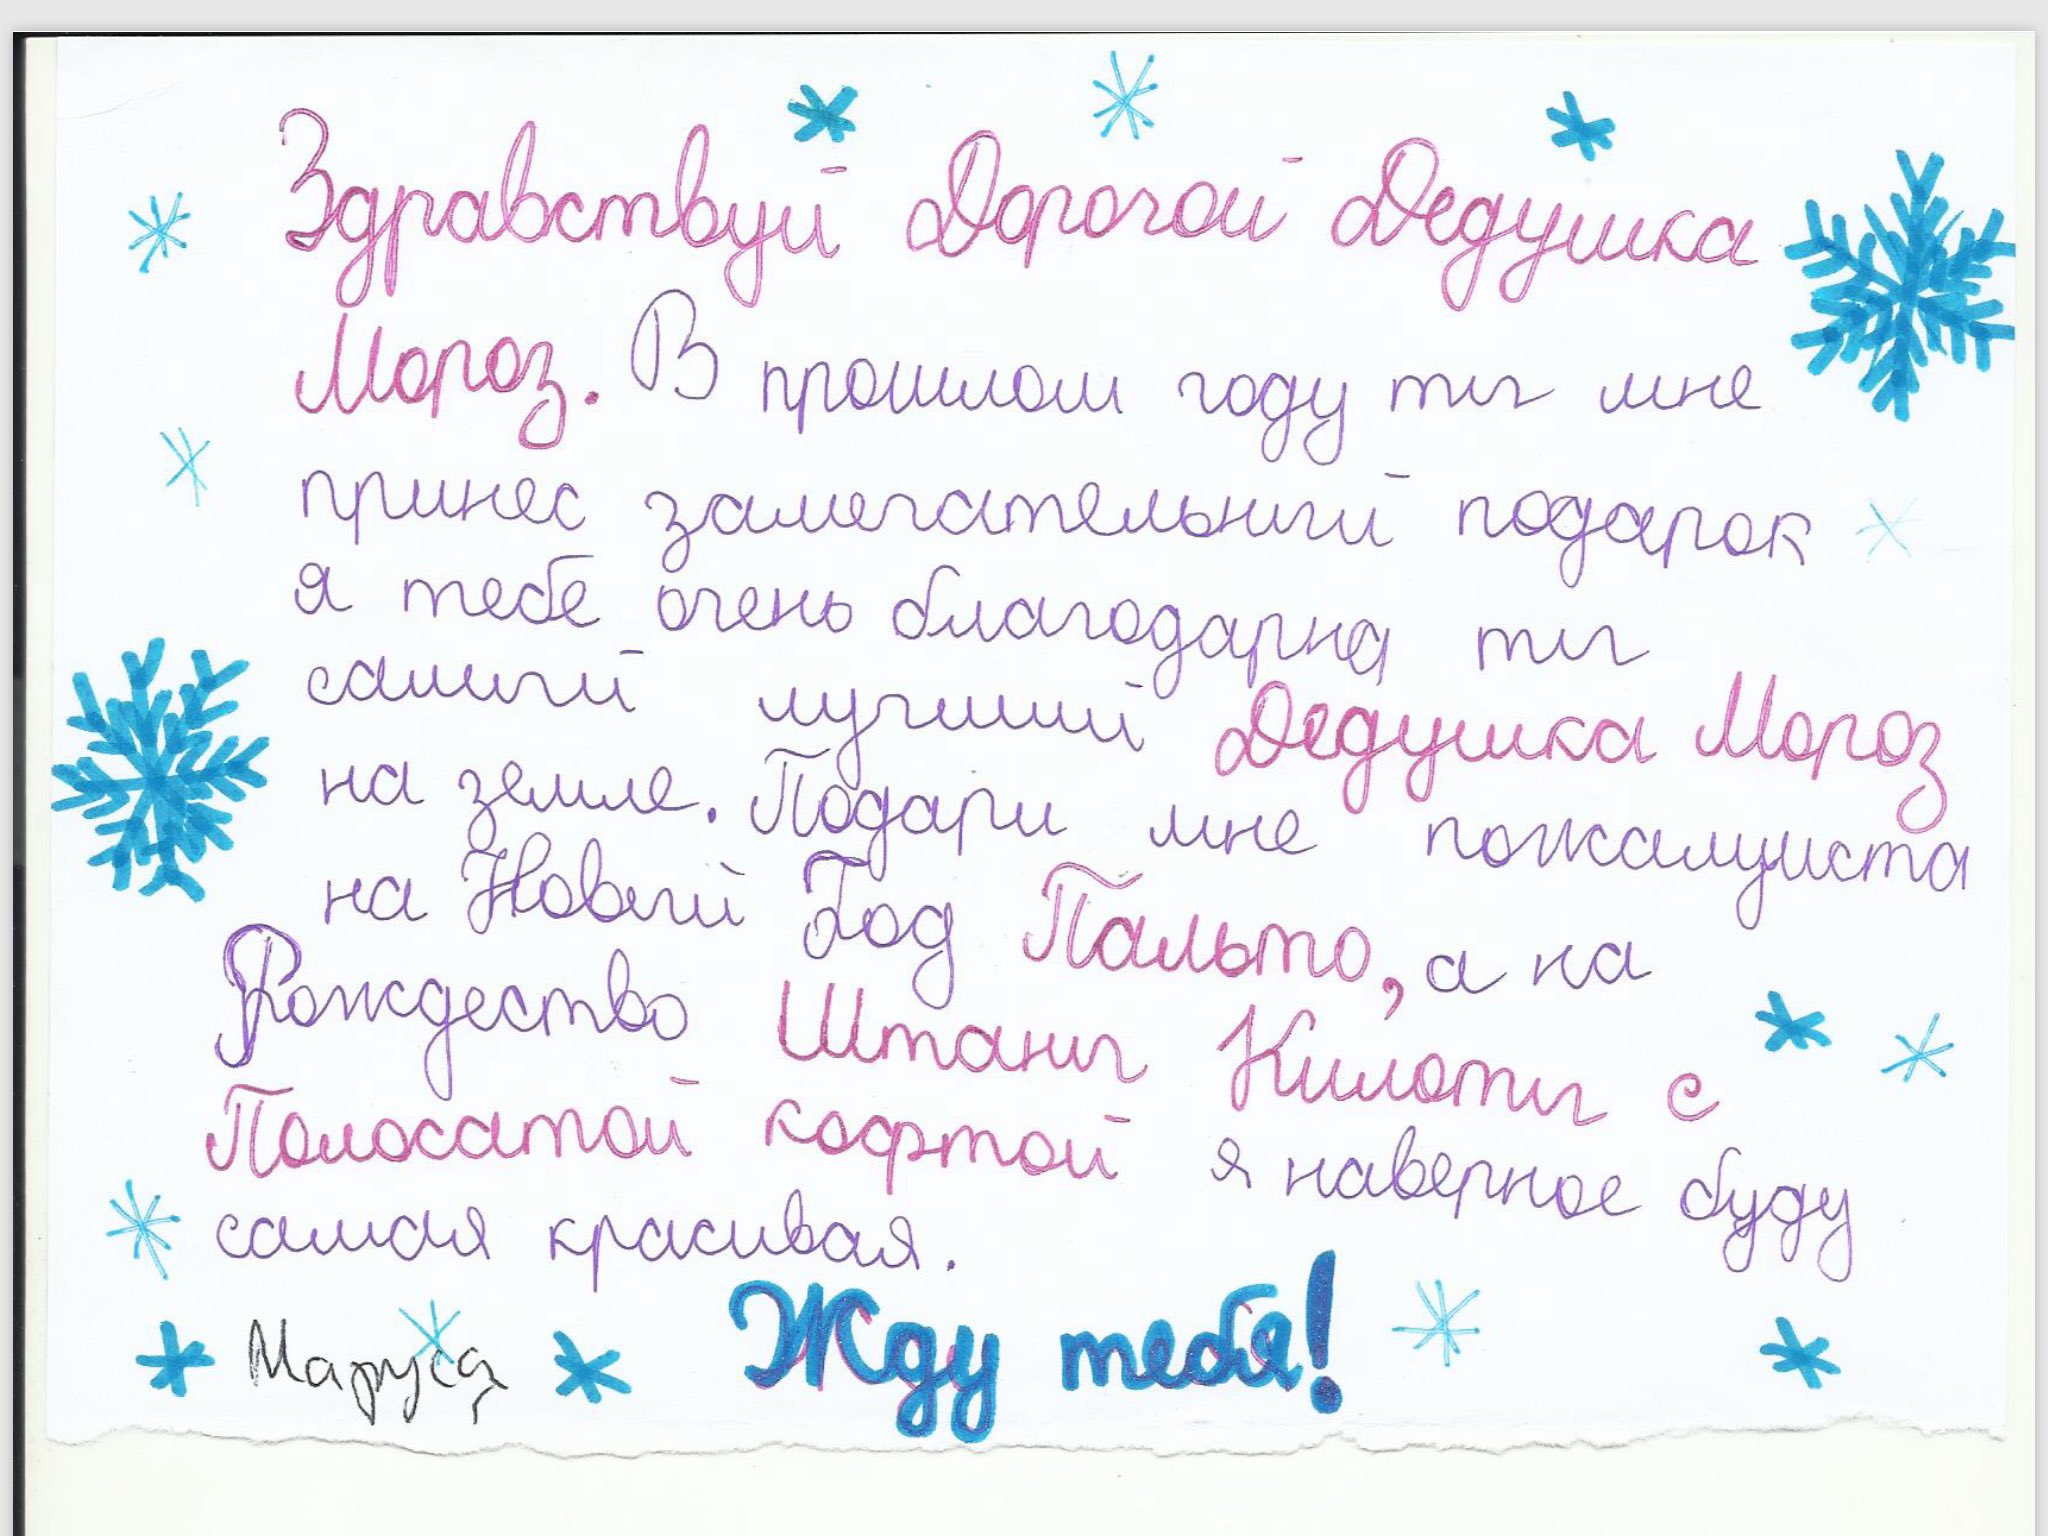 Здравствуй Дорогой Дедушка
Мороз. В прошлом году ты мне
принес замечательный подарок
я тебе очень благодарна ты
самый лучший Дедушка Мороз
на земле. Подари мне пожалуиста
на Новый Год Пальто, а на
Рождество Штаны Килоты с
Полосатой кофтой я наверное буду
самая красивая.
Жду тебя!
Маруся